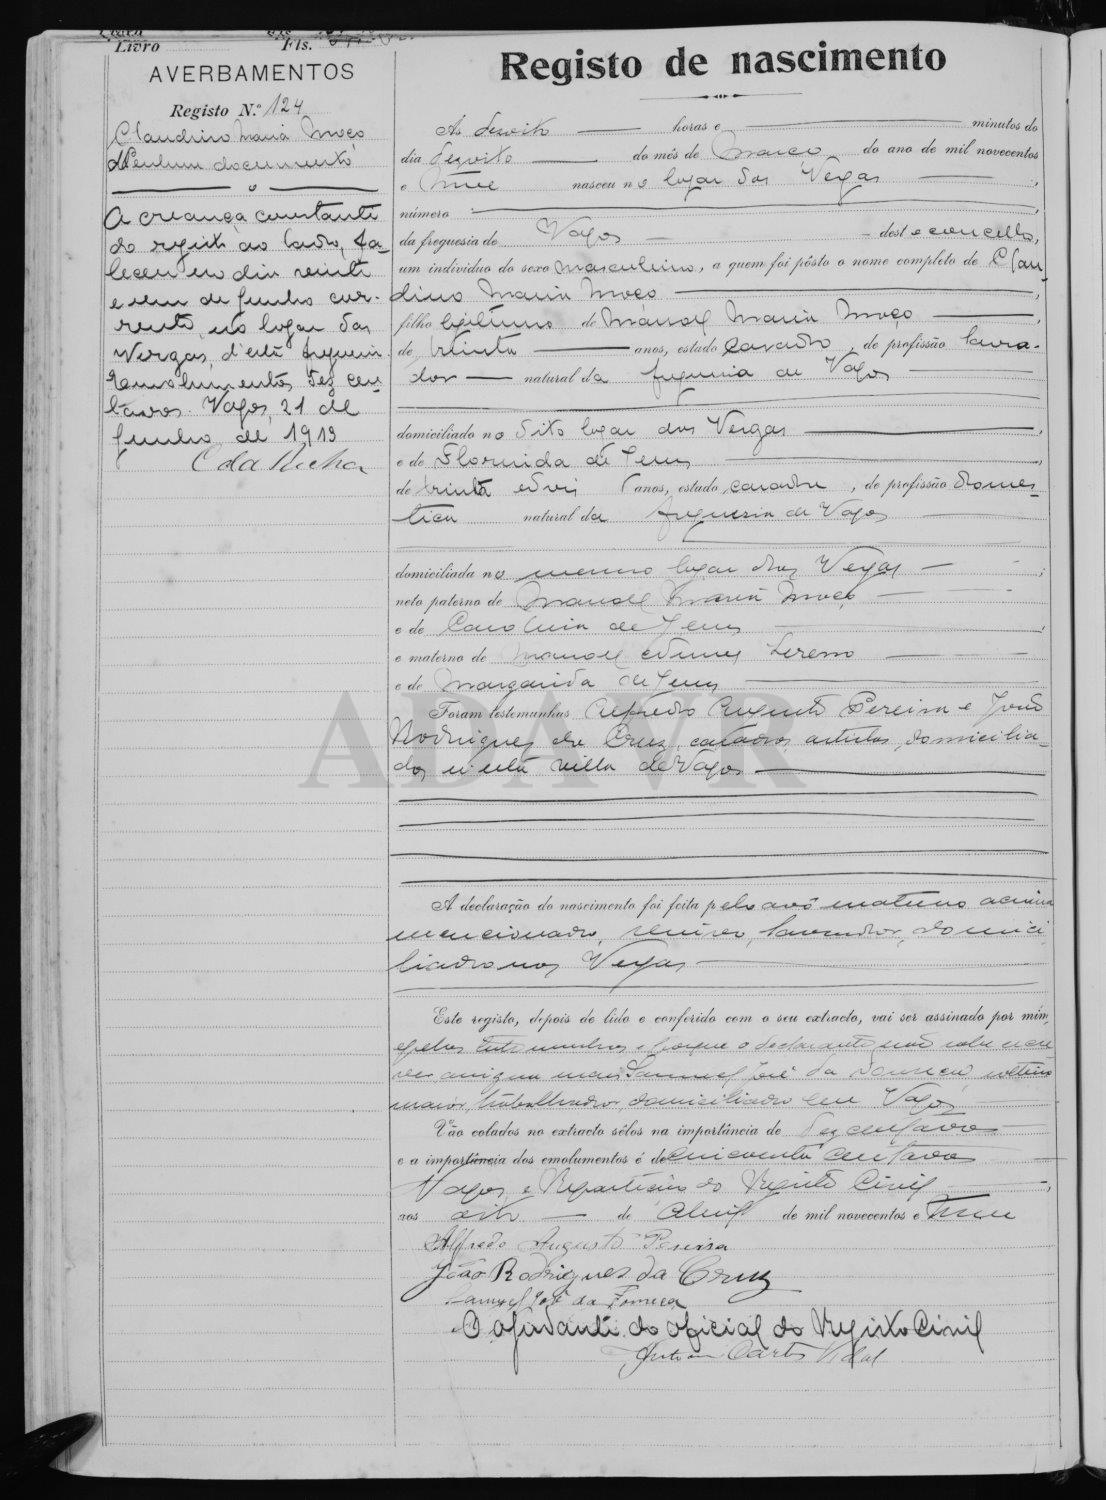 Livro Fls.
AVERBAMENTOS
Registo N.º 124
Claudino Maria Moço
Nenhum documento
A creança constante
do registo ao lado, fa-
leceu no dia vinte
e um de Junho cor-
rente, no logar das
Vergas, d'esta freguesia.
Emolumentos dez cen-
tavos. Vagos, 21 de
Junho de 1913
C da Rocha
Registo de nascimento
Ás dezoito horas e minutos do
dia dezoito do mês de Março do ano de mil novecentos
e treze nasceu no logar das Vergas,
número
da freguesia de Vagos deste concelho,
um individuo do sexo masculino, a quem foi pôsto o nome completo de Clau-
dino Maria Moço,
filho legitimo de Manoel Maria Moço,
de trinta anos, estado casado, de profissão lavra-
dor natural da freguesia de Vagos
domiciliado no dito logar das Vergas,
e de Florinda de Jesus,
de trinta e dois anos, estado casada, de profissão domes-
tica natural da freguesia de Vagos
domiciliada no mesmo logar das Vergas;
neto paterno de Manoel Maria Moço
e de Carolina de Jesus,
e materno de Manoel Nunes Sereno
e de Margarida de Jesus
Foram testemunhas Alfredo Augusto Pereira e João
Rodrigues da Cruz, casados, artistas, domicilia-
dos n'esta villa de Vagos
ADAVR
A declaração do nascimento foi feita pelo avô materno acima
mencionado, viuvo, lavrador, domici-
liado nas Vergas
Este registo, depois de lido e conferido com o seu extracto, vai ser assinado por mim,
e pelas testemunhas e porque o declarante não sabe escre-
ver assigna mais Samuel José da Fonseca, solteiro
maior, trabalhador, domiciliado em Vagos
Vão colados no extracto sêlos na importância de dez centavos
e a importância dos emolumentos é de cincoenta centavos
Vagos, e Repartição do Registo Civil,
aos oito de Abril de mil novecentos e treze
Alfredo Augusto Pereira
João Rodrigues da Cruz
Samuel José da Fonseca
O ajudante do oficial do Registo Civil
Duarte Vidal